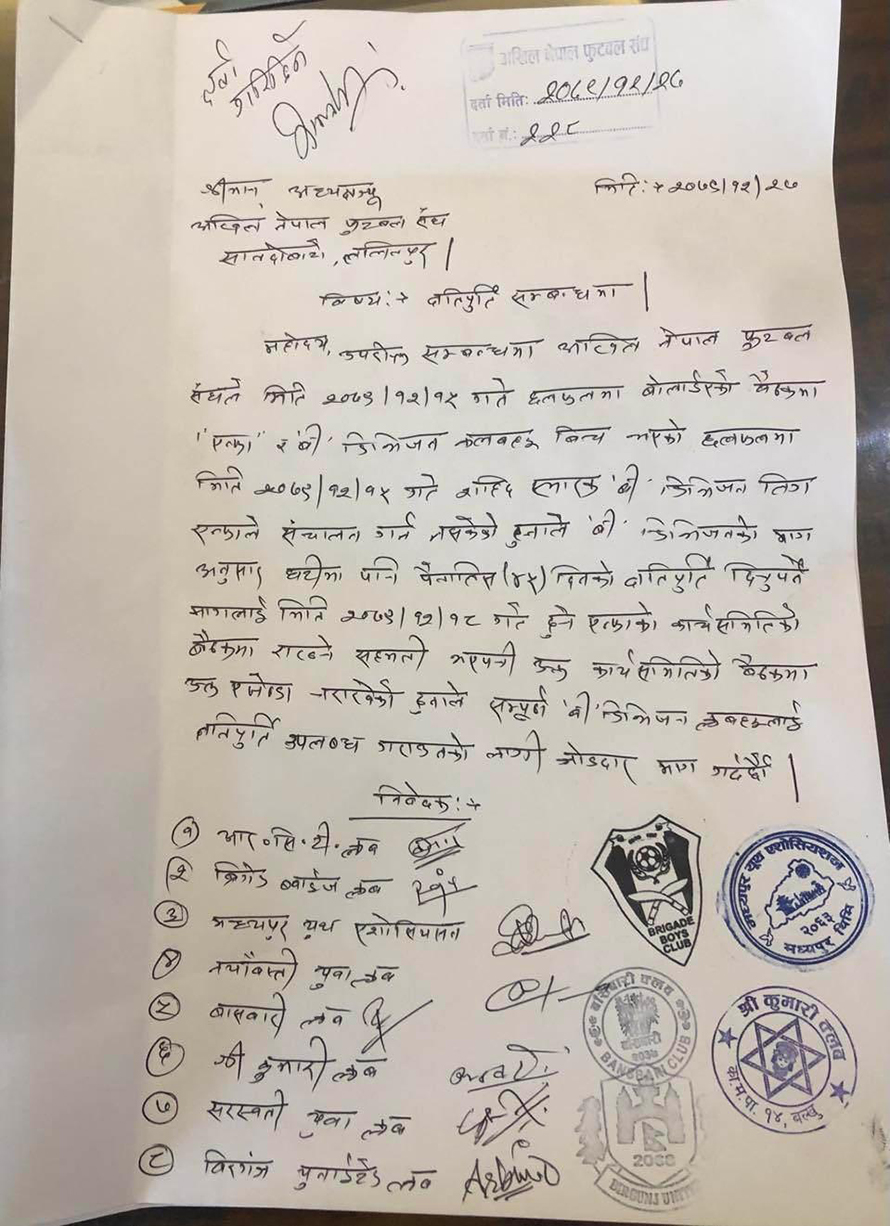 दर्ता गरिदिने
अखिल नेपाल फुटबल संघ
दर्ता मिति: २०७९/१२/२७
दर्ता नं.: २२८
श्रीमान अध्यक्षज्यू
मिति:→ २०७९/१२/२७
अखिल नेपाल फुटबल संघ
सातदोबाटो, ललितपुर |
विषय:→ क्षतिपुर्ति सम्बन्धमा |
महोदय, उपरोक्त सम्बन्धमा अखिल नेपाल फुटबल
संघले मिति २०७९/१२/१५ गते छलफलमा बोलाईएको बैठकमा
"एन्फा" र 'बी' डिभिजन क्लबहरु बिच भएको छलफलमा
मिति २०७९/१२/१५ गते शहिद स्मारक 'बी' डिभिजन लिग
एन्फाले संचालन गर्न नसकेको हुनाले 'बी' डिभिजनको माग
अनुसार घटीमा पनि पैतालिस (४५) दिनको क्षतिपुर्ति दिनुपर्ने
मागलाई मिति २०७९/१२/१८ गते हुने एन्फाको कार्यसमितिको
बैठकमा राख्ने सहमती भएपनी उक्त कार्यसमितिको बैठकमा
उक्त एजेण्डा नराखेको हुनाले सम्पूर्ण 'बी' डिभिजन क्लबहरुलाई
क्षतिपुर्ति उपलब्ध गराउनको लागी जोडदार माग गर्दछौं |
निवेदक:→
१ आर.सि.टी. क्लब
२ ब्रिगेड ब्वाईज क्लब
३ मध्यपुर युथ एशोसियसन
४ नयाँबस्ती युवा क्लब
५ बासबारी क्लब
६ श्री कुमारी क्लब
७ सरस्वती युवा क्लब
८ विरगंज युनाईटेड क्लब
BRIGADE
BOYS
CLUB
मध्यपुर यूथ एशोसियशन
२०६३
मध्यपुर थिमि
बाँसबारी क्लब
बाँसबारी
BANSBARI CLUB
श्री कुमारी क्लब
का.म.पा. १४, बल्खु
2066
BIRGUNJ UNITED